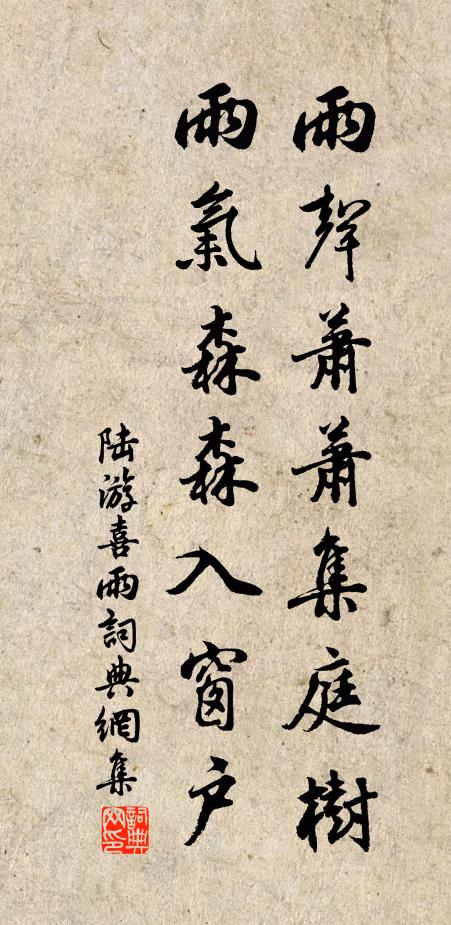 雨聲蕭蕭集庭樹
雨氣森森入窗户
陆游喜雨詞典網集
詞典网印